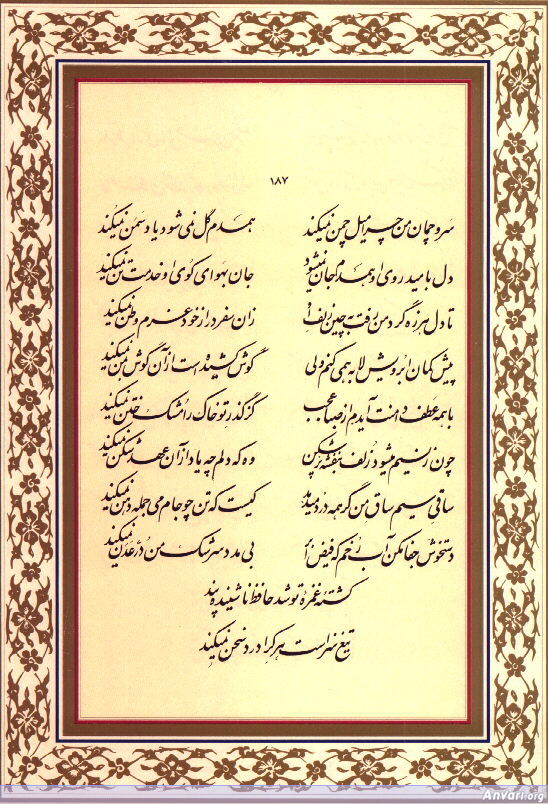 ۱۸۷
سرو چمان من چرا میل چمن نمیکند همدم گل نمی شود یاد سمن نمیکند
دل بامید روی او همدم جان نمیشود جان بهوای کوی او خدمت تن نمیکند
تا دل هرزه گرد من رفت به چین زلف او زان سفر دراز خود عزم وطن نمیکند
پیش کمان ابرویش لابه همی کنم ولی گوش کشیده است از آن گوش بمن نمیکند
با همه عطف دامنت آیدم از صبا عجب کز گذر تو خاک را مشک ختن نمیکند
چون ز نسیم میشود زلف بنفشه پرشکن وه که دلم چه یاد از آن عهد شکن نمیکند
ساقی سیم ساق من گر همه درد میدهد کیست که تن چو جام می جمله دهن نمیکند
دستخوش جفا مکن آب رخم که فیض ابر بی مدد سرشک من دُرّ عدن نمیکند
کشتهٔ غمزهٔ تو شد حافظ ناشنیده پند
تیغ سزاست هر کرا درد سخن نمیکند
Anvari.org